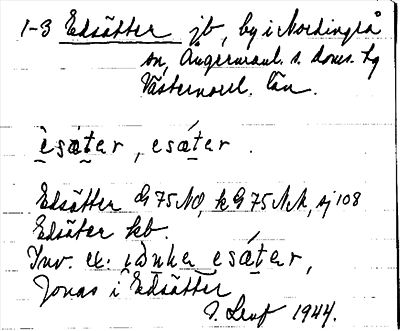 1-3 Edsätter jb, by i Nordingrå
sn, Ångermanl. s. doms. hg
Västernorrl. län.
èsæter, esæter.
Edsätter G 75 NO, k G 75 NA, sj 108
Edsäter kb.
Inv. ex. esæter,
Jonas i Edsätter
1944.